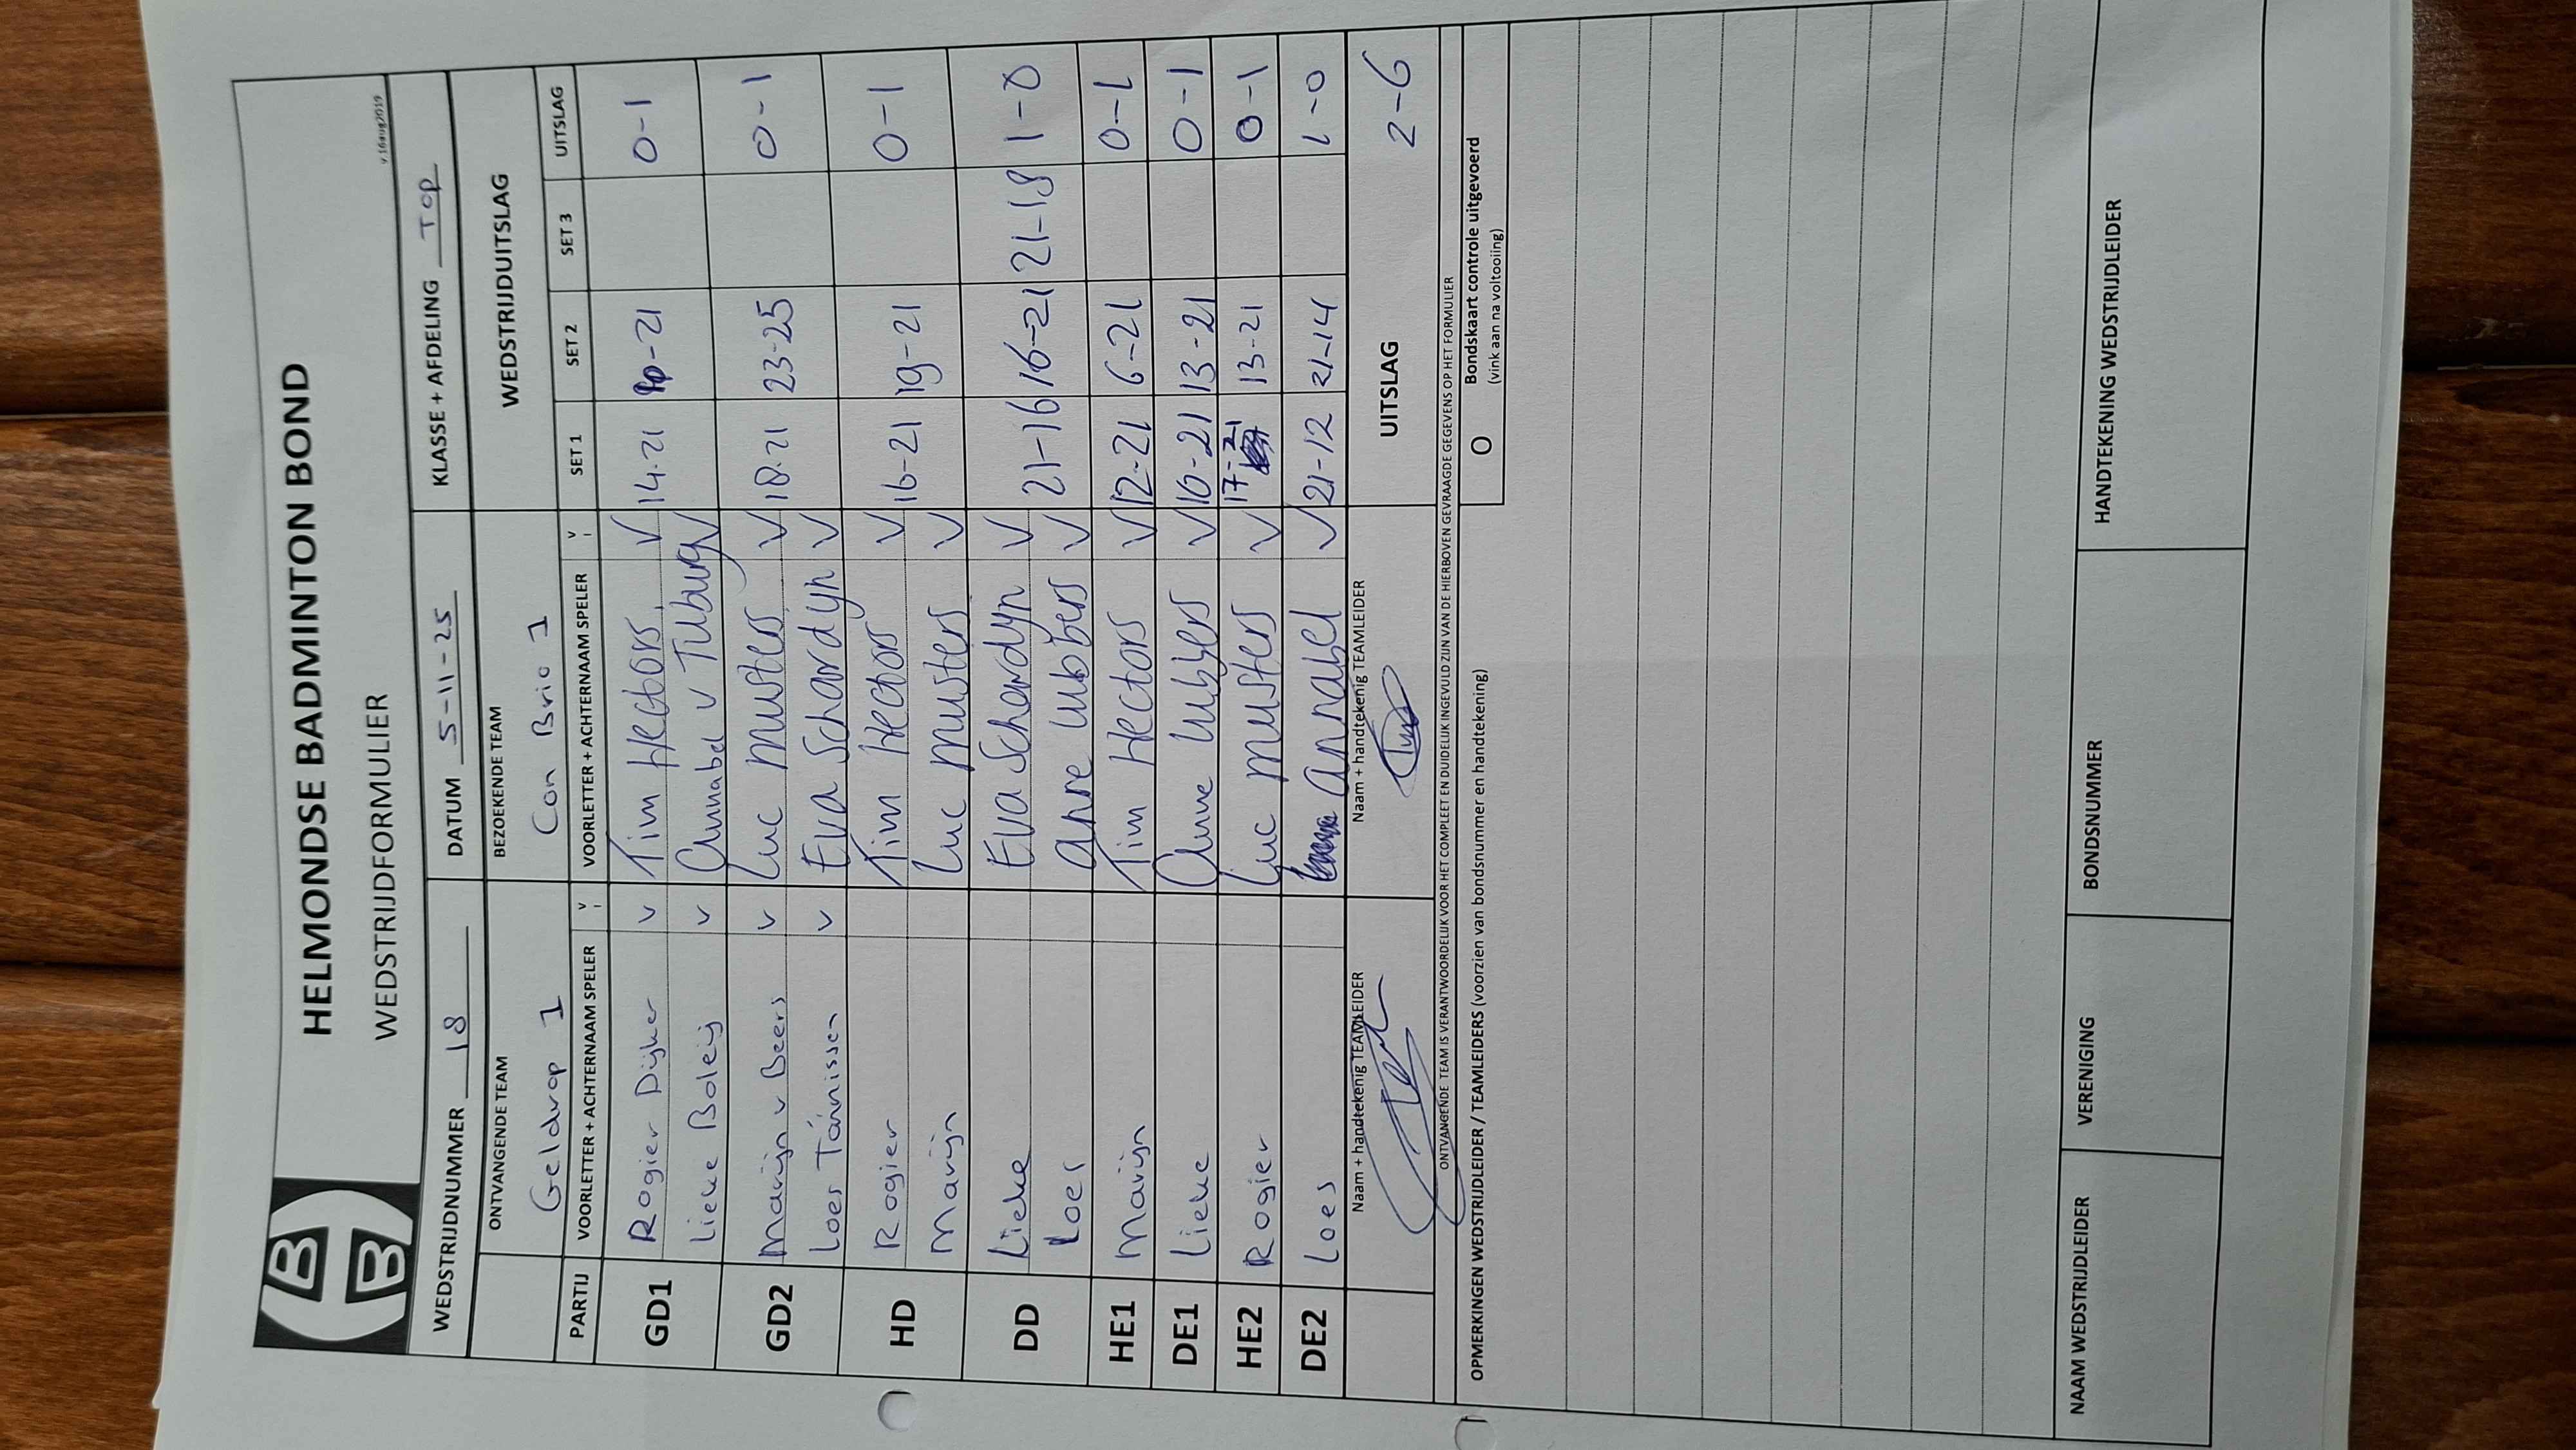 HELMONDSE BADMINTON BOND
WEDSTRIJDFORMULIER
v.16aug2019
WEDSTRIJDNUMMER 18 DATUM 5-11-25 KLASSE + AFDELING Top
ONTVANGENDE TEAM BEZOEKENDE TEAM WEDSTRIJDUITSLAG
Geldrop 1 Con Brio 1
PARTIJ VOORLETTER + ACHTERNAAM SPELER V VOORLETTER + ACHTERNAAM SPELER V SET 1 SET 2 SET 3 UITSLAG
GD1 Rogier Dijker v Tim Hectors V 14-21 10-21 0-1
Lieke Boleij v Annabel v Tilburg V
GD2 Marijn v Beers v Luc Musters V 18-21 23-25 0-1
Loes Tónnissen v Eva Schardyn V
HD Rogier Tim Hectors V 16-21 19-21 0-1
Marijn Luc Musters V
DD Lieke Eva Schardyn V 21-16 16-21 21-18 1-0
Loes Anne Lubbers V
HE1 Marijn Tim Hectors V 12-21 6-21 0-1
DE1 Lieke Anne Lubbers V 10-21 13-21 0-1
HE2 Rogier Luc Musters V 17-21 13-21 0-1
DE2 Loes Annabel V 21-12 21-14 1-0
Naam + handtekenig TEAMLEIDER Naam + handtekenig TEAMLEIDER UITSLAG 2-6
ONTVANGENDE TEAM IS VERANTWOORDELIJK VOOR HET COMPLEET EN DUIDELIJK INGEVULD ZIJN VAN DE HIERBOVEN GEVRAAGDE GEGEVENS OP HET FORMULIER
OPMERKINGEN WEDSTRIJDLEIDER / TEAMLEIDERS (voorzien van bondsnummer en handtekening) O Bondskaart controle uitgevoerd
(vink aan na voltooiing)
NAAM WEDSTRIJDLEIDER VERENIGING BONDSNUMMER HANDTEKENING WEDSTRIJDLEIDER